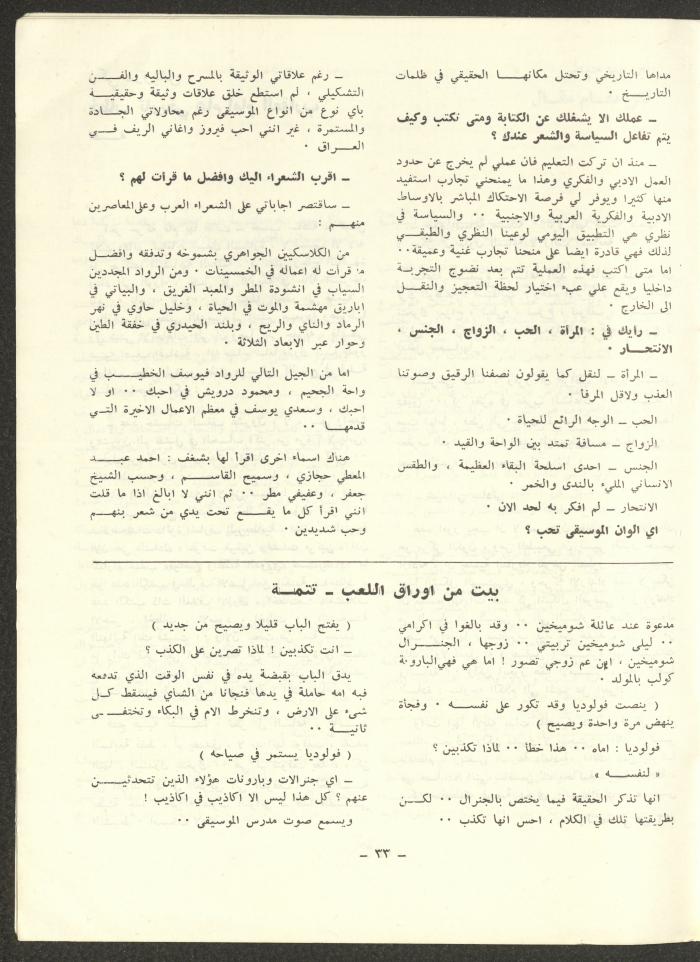 مداها التاريخي وتحتل مكانهـــا الحقيقي في ظلمات
التاريــخ ٠
ــ عملك الا يشغلك عن الكتابة ومتى تكتب وكيف
يتم تفاعل السياسة والشعر عندك ؟
ــ منذ ان تركت التعليم فان عملي لم يخرج عن حدود
العمل الادبي والفكري وهذا ما يمنحني تجارب استفيد
منها كثيرا ويوفر لي فرصة الاحتكاك المباشر بالاوساط
الادبية والفكرية العربية والاجنبية ٠٠ والسياسة في
نظري هي التطبيق اليومي لوعينا النظري والطبقــي
لذلك فهي قادرة ايضا على منحنا تجارب غنية وعميقة٠٠
اما متى اكتب فهذه العملية تتم بعد نضوج التجربــة
داخليا ويقع علي عبء اختيار لحظة التعجيز والنقــل
الى الخارج ٠
ــ رأيك في : المرأة ، الحب ، الزواج ، الجنس ،
الانتحــار ٠
ــ المرأة ــ لنقل كما يقولون نصفنا الرقيق وصوتنا
العذب ولاقل المرفأ ٠
الحب ــ الوجه الرائع للحياة ٠
الزواج ــ مسافة تمتد بين الواحة والقيد ٠
الجنس ــ احدى اسلحة البقاء العظيمة ، والطقس
الانساني المليء بالندى والخمر ٠
الانتحار ــ لم افكر به لحد الان ٠
اي الوان الموسيقى تحب ؟
ــ رغم علاقاتي الوثيقة بالمسرح والباليه والفــن
التشكيلي ، لم استطع خلق علاقات وثيقة وحقيقيــة
باي نوع من انواع الموسيقى رغم محاولاتي الجــادة
والمستمرة ، غير انني احب فيروز واغاني الريف فــي
العــراق ٠
ــ اقرب الشعراء اليك وافضل ما قرأت لهم ؟
ــ ساقتصر اجاباتي على الشعراء العرب وعلىالمعاصرين
منهــم :
من الكلاسكيين الجواهري بشموخه وتدفقه وافضــل
ما قرأت له اعماله في الخمسينات ٠ ومن الرواد المجددين
السياب في انشودة المطر والمعبد الغريق ، والبياتي في
اباريق مهشمة والموت في الحياة ، وخليل حاوي في نهر
الرماد والناي والريح ، وبلند الحيدري في خفقة الطين
وحوار عبر الابعاد الثلاثة ٠
اما من الجيل التالي للرواد فيوسف الخطيــب في
واحة الجحيم ، ومحمود درويش في احبك ٠٠ او لا
احبك ، وسعدي يوسف في معظم الاعمال الاخيرة التــي
قدمهــا ٠٠
هناك اسماء اخرى اقرأ لها بشغف : احمد عبــد
المعطي حجازي ، وسميح القاســم ، وحسب الشيخ
جعفر ، وعفيفي مطر ٠٠ ثم انني لا ابالغ اذا ما قلت
انني اقرأ كل ما يقــع تحت يدي من شعر بنهــم
وحب شديدين ٠
بيت من اوراق اللعب ــ تتمــة
مدعوة عند عائلة شوميخين ٠٠ وقد بالغوا في اكرامي
٠٠ ليلى شوميخين تربيتي ٠٠ زوجها ، الجنــرال
شوميخين ، ابن عم زوجي تصور ! اما هي فهيالبارونة
كولب بالمولد ٠
( ينصت فولوديا وقد تكور على نفســه ٠ وفجأة
ينهض مرة واحدة ويصيح )
فولوديا : اماه ٠٠ هذا خطأ ٠٠ لماذا تكذبين ؟
« لنفســه »
انها تذكر الحقيقة فيما يختص بالجنرال ٠٠ لكــن
بطريقتها تلك في الكلام ، احس انها تكذب ٠٠
( يفتح الباب قليلا ويصيح من جديد )
ــ انت تكذبين ! لماذا تصرين على الكذب ؟
يدق الباب بقبضة يده في نفس الوقت الذي تدفعه
فيه امه حاملة في يدها فنجانا من الشاي فيسقط كــل
شيء على الارض ، وتنخرط الام في البكاء وتختفــى
ثانيــة ٠٠
( فولوديا يستمر في صياحه )
ــ اي جنرالات وبارونات هؤلاء الذين تتحدثيــن
عنهم ؟ كل هذا ليس الا اكاذيب في اكاذيب !
ويسمع صوت مدرس الموسيقى ٠٠
ــ ٣٣ ــ